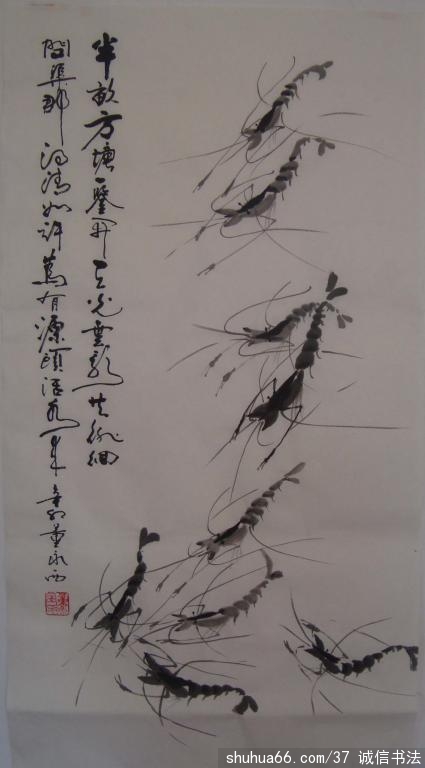 半畝方塘一鑒开天光雲影共徘徊
問渠那得清如許為有源頭活水來 董永西
shuhua66.com/37 诚信书法